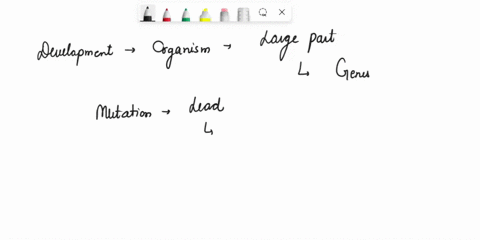 Development → Organism → Large part
↳ Genes
Mutation → Lead
↳